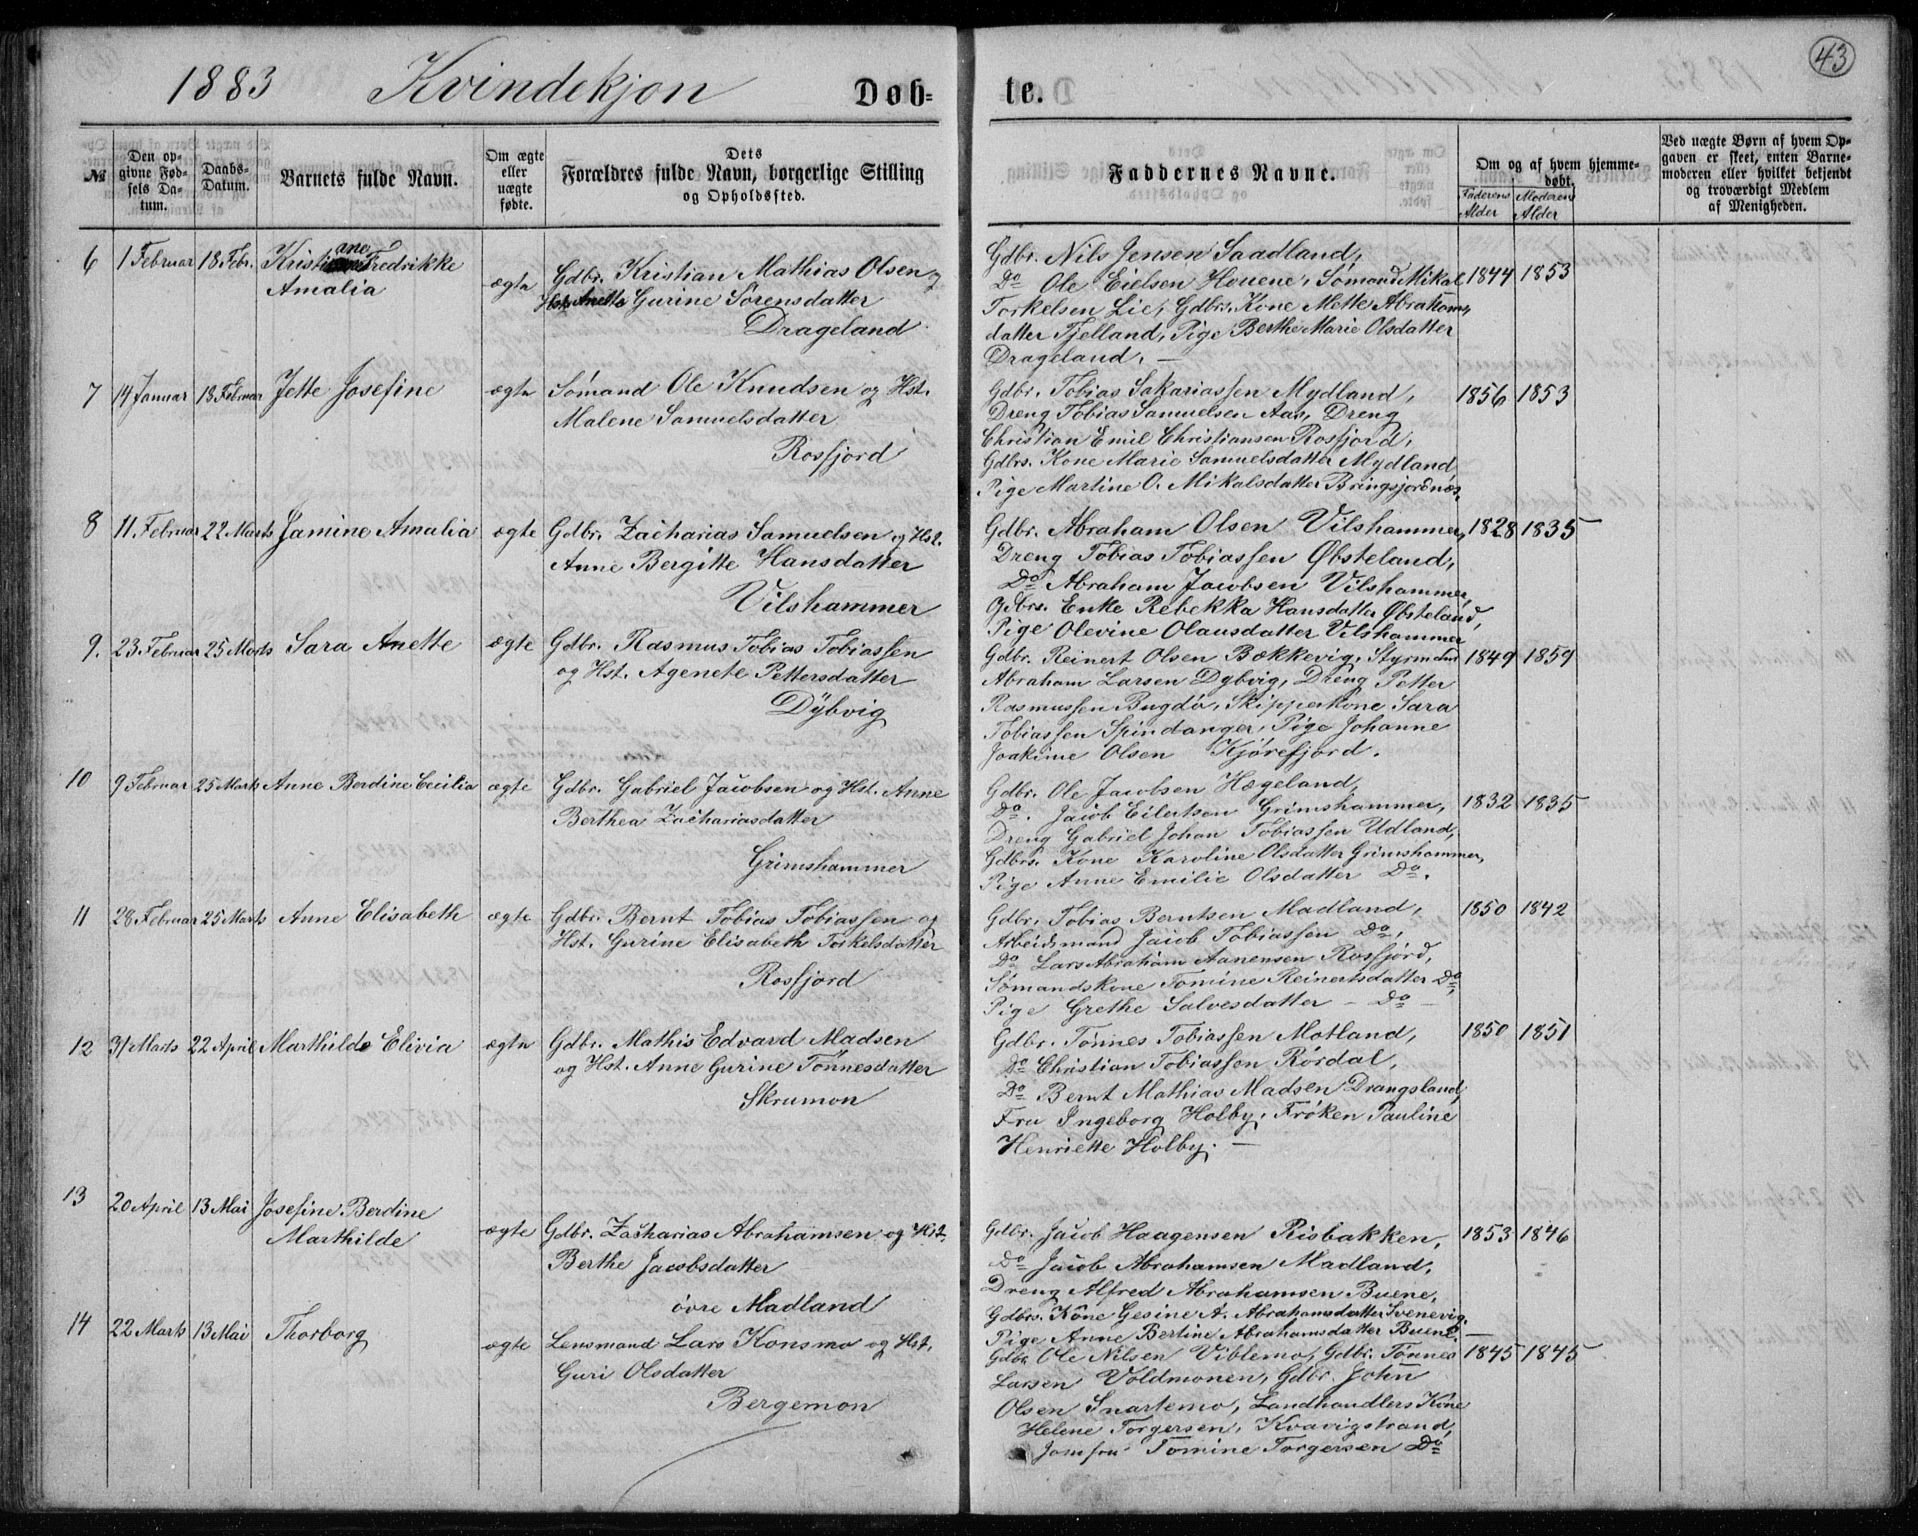 1883 Kvindekjøn Døb=
№
Den op-
givne Fød-
sels Da-
tum.
Daabs-
Datum.
Barnets fulde Navn.
Om ægte
eller
uægte
fødte.
Dets
Forældres fulde Navn, borgerlige Stilling
og Opholdssted.
6 1 Februar 18 Febr. Kristiane Fredrikke
Amalia
ægte
Gdbr. Kristian Mathias Olsen og
Hst. Anette Gurine Sørensdatter
Drageland
7 14 Januar 18 Februar Jette Josefine ægte Sømand Ole Knudsen og Hst.
Malene Samuelsdatter
Rosfjord
8 11. Februar 22 Marts Jamine Amalia ægte Gdbr. Zacharias Samuelsen og Hst.
Anne Bergitte Hansdatter
Vilshammer
9. 23. Februar 25 Marts Sara Anette ægte Gdbr. Rasmus Tobias Tobiassen
og Hst. Agenete Pettersdatter
Dÿbvig
10 9 Februar 25 Marts Anne Berdine Cecilia ægte Gdbr. Gabriel Jacobsen og Hst. Anne
Berthea Zachariasdatter
Grimshammer
11 28. Februar 25 Marts Anne Elisabeth ægte Gdbr. Bernt Tobias Tobiassen og
Hst. Gurine Elisabeth Torkelsdatter
Rosfjord
12 31 Marts 22 April Marthilde Elivia ægte Gdbr. Mathis Edvard Madsen
og Hst. Anne Gurine Tønnesdatter
Skrumon
13 20 April 13 Mai Josefine Berdine
Marthilde
ægte Gdbr. Zacharias Abrahamsen og Hst.
Berthe Jacobsdatter
øvre Madland
14 22 Marts 13 Mai Thorborg ægte Lensmand Lars Konsmo og Hst.
Guri Olsdatter
Bergemon
te. 43
Faddernes Navne.
Om og af hvem hjemme-
døbt.
Faderens Alder
Moderens Alder
Ved uægte Børn af hvem Op-
gaven er skeet, enten Barne-
moderen eller hvilket bekjendt
og troværdigt Medlem
af Menigheden.
Gdbr. Nils Jensen Saadland,
Do Ole Eielsen Houene, Sømand Mikal 1844 1853
Torkelsen Lie, Gdbrs. Kone Mette Abrahams
datter Fjelland, Pige Berthe Marie Olsdatter
Drageland. —
Gdbr. Tobias Sakariassen Mydland, 1856 1853
Dreng Tobias Samuelsen Aas, Dreng
Christian Emil Christiansen Rosfjord,
Gdbrs. Kone Marie Samuelsdatter Mydland
Pige Martine O. Mikalsdatter Bringsjordnæs.
Gdbr. Abraham Olsen Vilshammer, 1828 1835
Dreng Tobias Tobiassen Øbsteland,
Do Abraham Jacobsen Vilshammer,
Gdbrs. Enke Rebekka Hansdatter Øbsteland,
Pige Olevine Olausdatter Vilshammer
Gdbr. Reinert Olsen Bækkevig, Styrmand 1849 1859
Abraham Larsen Dybvig, Dreng Petter
Rasmussen Bugdø, Skipperkone Sara
Tobiassen Spindanger, Pige Johanne
Joakime Olsen Kjørefjord.
Gdbr. Ole Jacobsen Hægeland,
Do. Jacob Eilertsen Grimshammer, 1832 1835
Dreng Gabriel Johan Tobiassen Udland,
Gdbrs. Kone Karoline Olsdatter Grimshammer,
Pige Anne Emilie Olsdatter Do.
Gdbr. Tobias Berntsen Madland, 1850 1842
Arbeidsmand Jacob Tobiassen Do,
Do Lars Abraham Aanensen Rosfjord,
Sømandskone Tomine Reinertsdatter Do,
Pige Grethe Salvesdatter — Do —
Gdbr. Tønnes Tobiassen Motland, 1850 1851
Do Christian Tobiassen Rørdal,
Do Bernt Mathias Madsen Drangsland,
Fru Ingeborg Holby, Frøken Pauline
Henriette Holby. —
Gdbr. Jacob Haagensen Risbakken, 1853 1846
Do Jacob Abrahamsen Madland,
Dreng Alfred Abrahamsen Buene,
Gdbrs. Kone Gesine A. Abrahamsdatter Svenevig.
Pige Anne Bertine Abrahamsdatter Buene. —
Gdbr. Ole Nilsen Viblemo, Gdbr. Tønnes 1845 1845
Larsen Voldmonen, Gdbr. John
Olsen Snartemo, Landhandlers Kone
Helene Torgersen, Kvavigstrand,
Jomfru Tomine Torgersen Do